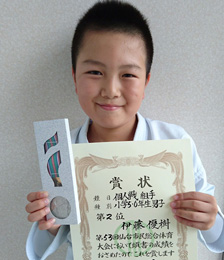 賞状
種目 個人戦 組手
種別 小学6年生男子
第2位
伊藤優樹
第53回仙台市民総合体育
大会において頭書の成績を
おさめたのでこれを賞します